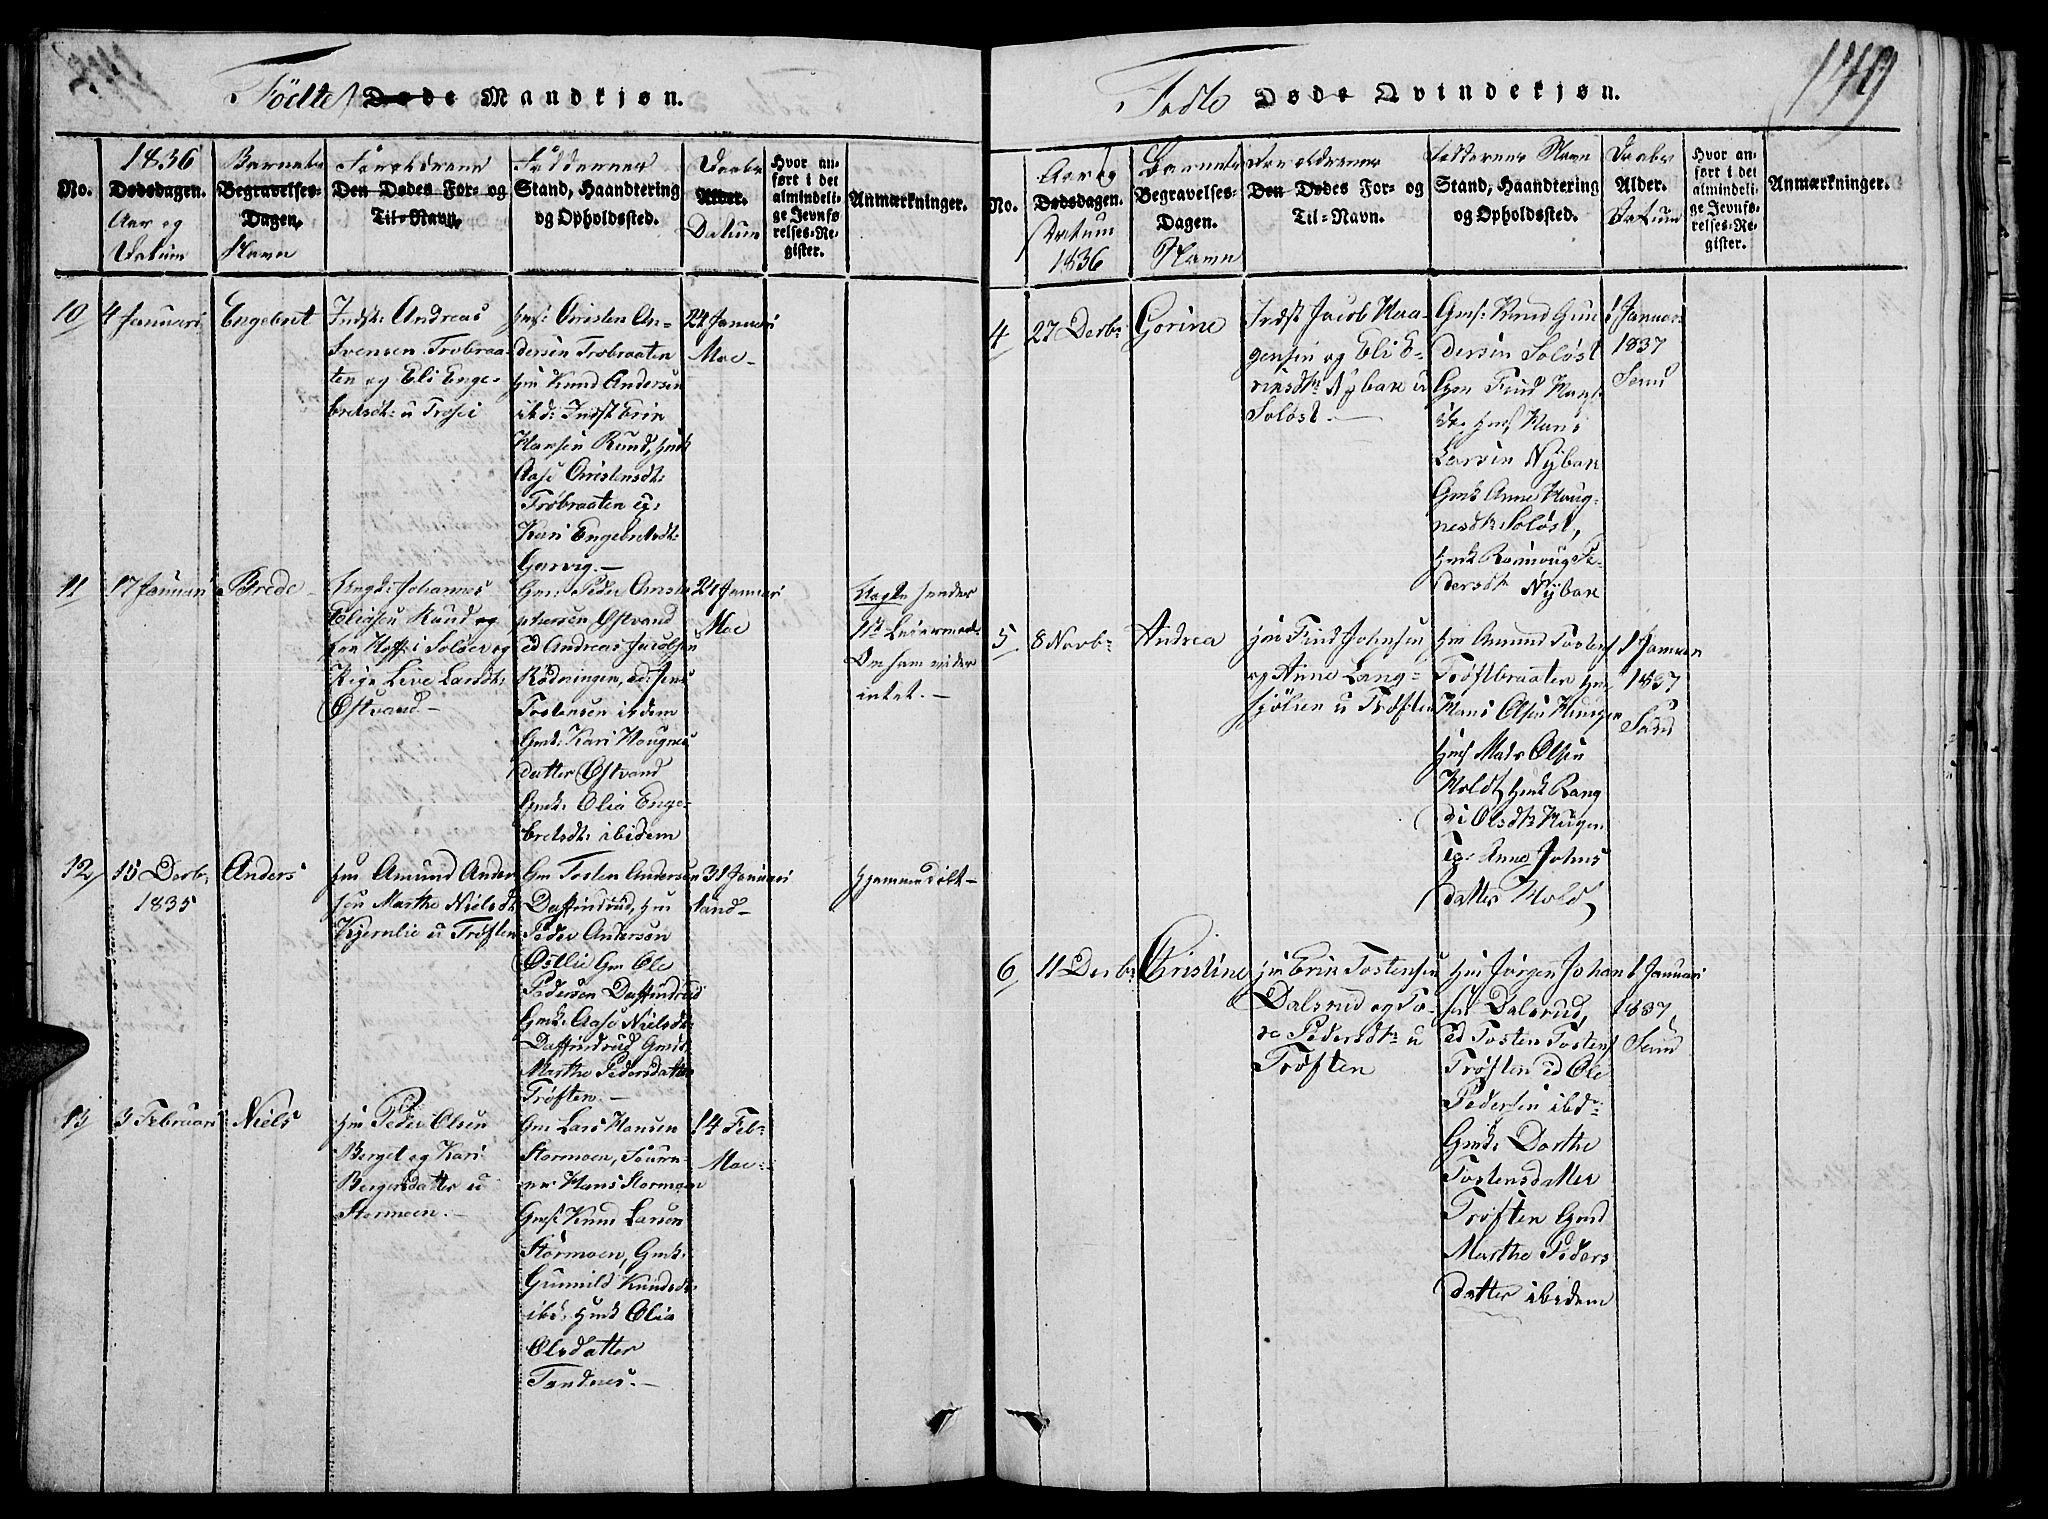 149
Födte Døde Mandkjøn.
No.
1836
Dødsdagen.
Aar og
Datum
Barnets
Begravelses-
Dagen.
Navn
Forældrenes
Den Dødes For- og
Til-Navn.
Faddernes
Stand, Haandtering
og Opholdssted.
Daabs
Alder.
Datum
Hvor an-
ført i det
almindeli-
ge Jevnfø-
relses-Re-
gister.
Anmærkninger.
10
4 Januari
Engebret
Indst: Andreas
Svensen Trobraa-
ten og Eli Enge-
bretsdt: u Trysei
Christen An-
dersen Trobraaten
Knud Andersen
ibd: Indst Erin
Hansen Rund,
Aase Christensdt:
Trøbraaten
Kari Engebretsdt:
Garvig.—
24 Januari
Moe—
11
17 Januari
Brede
Johannes
Eliasen Rund og
Pige Live Larsdt:
Østvand—
Gm: Peder Christo-
phersen Østvand
Andreas Jacobsen
Rödningen,
Tostensen ibidem
Gmk: Kari Haugnes
datter Østvand
Gmk: Olia Enge-
bretsdt: ibidem
24 Januari
Moe
Begte hendes
1te Leiermaal.
Om ham vides
intet.—
12
15 Decbr:
1835
Anders
Amund Ander
sen Marthe Nielsdt
Kjernlie u Trøften
Gm Tosten Andersen
Daffindrud,
Peder Andersen
Østlie Gm Ole
Pedersen Daffindrud
Gmk: Aase Nielsdt:
Daffindrud
Marthe Pedersdatter
Trøften.—
31 Januari
Sand—
Hjemmedøbt—
13
3 Februari
Niels
Peder Olsen
Berget og Kari
Bergersdatter u
Stormoen.—
Gm Lars Hansen
Stormoen,
Hans Stormoen
Knud Larsen
Stormoen, Gmk:
Gunnild Knudsdt:
ibd, Olia
Olsdatter
Tandnes.—
14 Feb-
Moe—
Fødte Døde Qvindekjøn.
No.
Aar og
Dødsdagen.
Datum
1836
Barnets
Begravelses-
Dagen.
Navn
Forældrenes
Den Dødes For- og
Til-Navn.
Faddernes Navn
Stand, Haandtering
og Opholdssted.
Daabs
Alder.
Datum
Hvor an-
ført i det
almindeli-
ge Jevnfø-
relses-Re-
gister.
Anmærkninger.
4
27 Decbr
Gorine
Indst Jacob Haa-
gensen og Eli E-
rinsdtr Nÿbak u
Soløst—
Gm: Knud Gun
dersen Soløst
Hans
Larsen Nÿbak
Gmk Anne Haug-
nesdtr Soløst,
Ronnoug Pe-
dersdtr Nÿbak
1 Januar
1837
Sand
5
8 Novbr
Andrea
Johnsen
og Anne Lang-
sjölien u Trøften
Amund Tostens
Trøftbraaten
Hans Olsen Haugen
Mads Olsen
Holdt, Rang
di Olsdtr Haugen
Anne Johns
datter Hold
1 Januar
1837
Sand
6
11 Decbr
Christine
Erin Tostensen
Dalsrud og To-
ra Pedersdtr u
Trøften
Jørgen Johan
sen Dalsrud,
Tosten Tostens
Trøften Ole
Pedersen ibd:
Gmk: Dorthe
Tostensdatter
Trøften
Marthe Peders
datter ibidem
1 Januari
1837
Sand